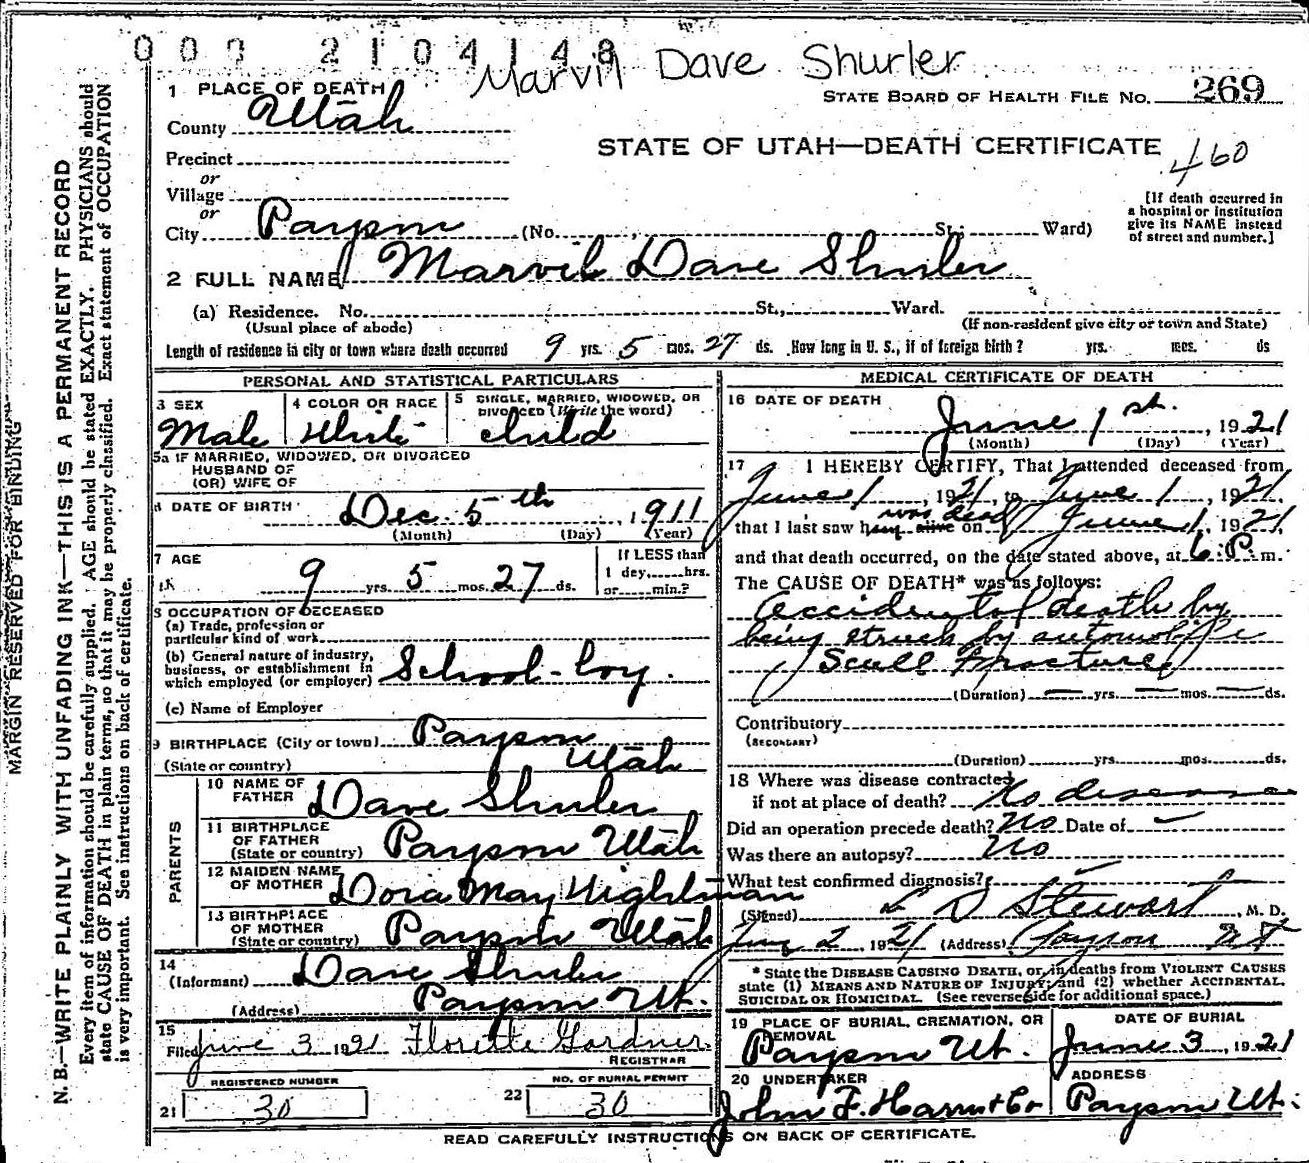 0 0 0 2 1 0 4 1 4 8
Marvil Dave Shurler
1 PLACE OF DEATH
STATE BOARD OF HEALTH FILE NO. 269
County Utah
STATE OF UTAH—DEATH CERTIFICATE
460
Precinct
or
Village
or
City Payson (No. St.; Ward)
[If death occurred in
a hospital or institution
give its NAME instead
of street and number.]
2 FULL NAME Marvil Dave Shurler
(a) Residence. No. St., Ward.
(Usual place of abode) (If non-resident give city or town and State)
Length of residence in city or town where death occurred 9 yrs. 5 mos. 27 ds. How long in U. S., if of foreign birth? yrs. mos. ds
PERSONAL AND STATISTICAL PARTICULARS
3 SEX 4 COLOR OR RACE 5 SINGLE, MARRIED, WIDOWED, OR
DIVORCED (Write the word)
Male White child
5a IF MARRIED, WIDOWED, OR DIVORCED
HUSBAND OF
(OR) WIFE OF
6 DATE OF BIRTH Dec. 5th, 1911
(Month) (Day) (Year)
7 AGE 9 yrs. 5 mos. 27 ds.
If LESS than
1 day, hrs.
or min.?
8 OCCUPATION OF DECEASED
(a) Trade, profession or
particular kind of work
(b) General nature of industry,
business, or establishment in
which employed (or employer) School-boy.
(c) Name of Employer
9 BIRTHPLACE (City or town) Payson
(State or country) Utah
PARENTS
10 NAME OF
FATHER Dave Shurler
11 BIRTHPLACE
OF FATHER
(State or country) Payson Utah
12 MAIDEN NAME
OF MOTHER Dora May Wightman
13 BIRTHPLACE
OF MOTHER
(State or country) Payson Utah
14
(Informant) Dave Shurler
(Address) Payson Ut.
15
Filed June 3 1921 Florette Gardner.
REGISTRAR
REGISTERED NUMBER
21 30
NO. OF BURIAL PERMIT
22 30
MEDICAL CERTIFICATE OF DEATH
16 DATE OF DEATH
June 1st., 1921
(Month) (Day) (Year)
17 I HEREBY CERTIFY, That I attended deceased from
June 1, 1921, to June 1, 1921,
that I last saw h alive on was dead June 1, 1921,
and that death occurred, on the date stated above, at 6 P. m.
The CAUSE OF DEATH* was as follows:
Accidental death by
being struck by automobile
Scull Fracture
(Duration) — yrs. — mos. — ds.
Contributory
(SECONDARY)
(Duration) yrs. mos. ds.
18 Where was disease contracted
if not at place of death? No disease
Did an operation precede death? No Date of —
Was there an autopsy? No
What test confirmed diagnosis?
(Signed) L D Stewart, M. D.
June 2, 1921 (Address) Payson Ut
* State the DISEASE CAUSING DEATH, or, in deaths from VIOLENT CAUSES
state (1) MEANS AND NATURE OF INJURY; and (2) whether ACCIDENTAL,
SUICIDAL OR HOMICIDAL. (See reverse side for additional space.)
19 PLACE OF BURIAL, CREMATION, OR
REMOVAL
Payson Ut.
DATE OF BURIAL
June 3, 1921
20 UNDERTAKER
John F. & Co
ADDRESS
Payson Ut.
READ CAREFULLY INSTRUCTIONS ON BACK OF CERTIFICATE.
MARGIN RESERVED FOR BINDING
N. B.—WRITE PLAINLY WITH UNFADING INK—THIS IS A PERMANENT RECORD
Every item of information should be carefully supplied. AGE should be stated EXACTLY. PHYSICIANS should
state CAUSE OF DEATH in plain terms, so that it may be properly classified. Exact statement of OCCUPATION
is very important. See instructions on back of certificate.